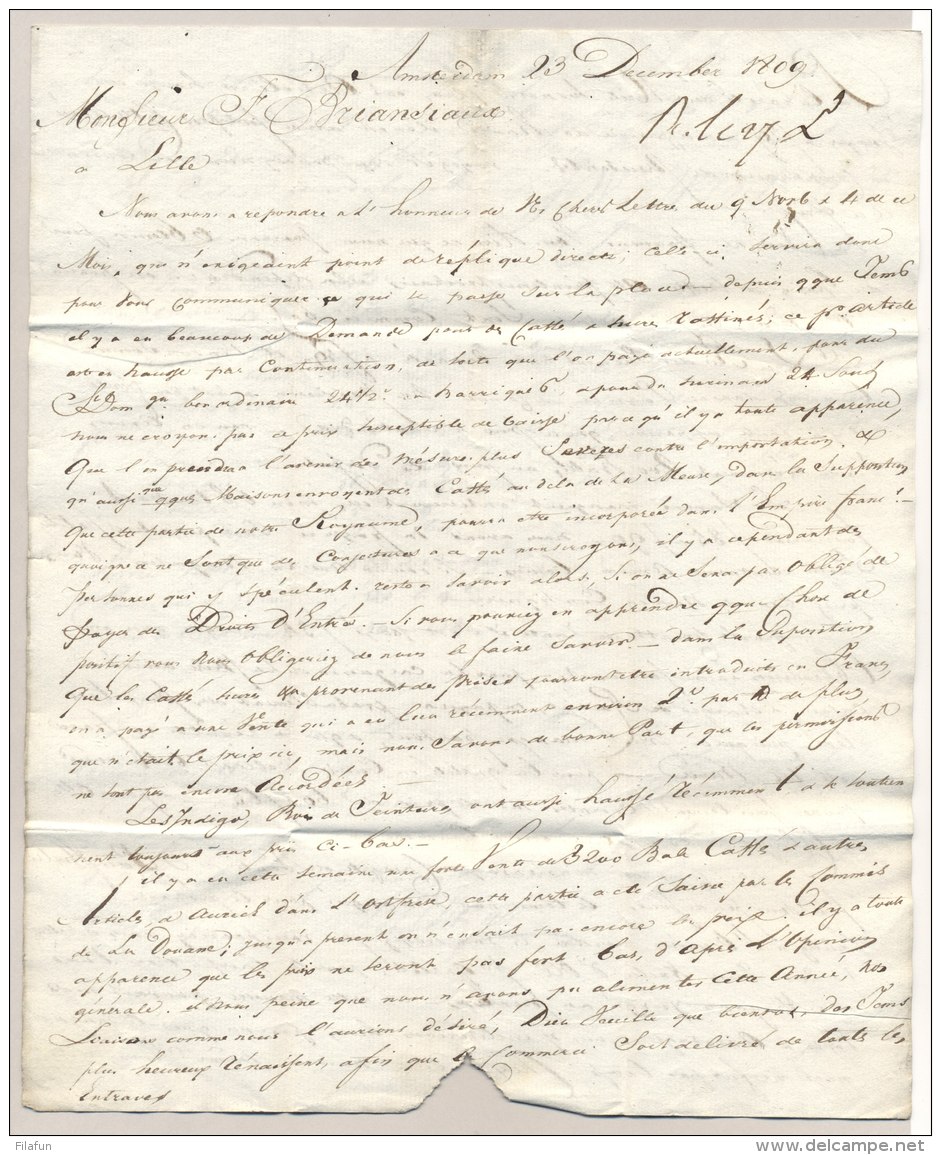 Amsterdam 23 December 1809
Monsieur F. Briansiaux
a Lille
Nous avons a repondre a l'honneur de Vs Cheres Lettre du 9 Novb & 4 de ce
Mois, qui n'exigeaint point de réplique directe, Celle ci servira donc
pour vous communiquer ce qui se passe sur la place depuis qque Temps
il y a eu beaucoup de Demande pour des Caffé & sucres raffinés; ce pr. article
est en hausse par Continuation, de sorte que l'on paye actuellement pour du
St Dom gu bon ordinaire 24 1/2 a Barriques, & pour du surinam 24 Sous
nous ne croyons pas ce prix susceptible de baisse parce qu'il y a toute apparence,
Que l'on prendra a l'avenir des mésures plus Sevères contre l'importation &
qu'aussi qques Maisons envoyent des Caffé au dela de la Meuse, dans la Supposition
que cette partie de notre Royaume, pourra etre incorporée dans l'Empire franc.
quoique ce ne sont que des Conjectures a ce que nous croyons, il y a cependant des
personnes qui y spéculent. reste a savoir alors, Si on ne sera pas obligé de
payer des Droits D'Entré. Si vous pouriez en apprendre qque Chose de
positif vous nous obligeriez de nous le faire savoir — dans la Suposition
Que les Caffé, sucres & provenant des prises pourront etre introduits en France
on a payé a une Vente qui a eu lieu recemment environ 2 s par lb de plus
que n'était le prix ici, mais nous savons de bonne Part, que ces permissions
ne sont pas encore Acordées —
Les Indigo, Bois de Teinture, ont aussi haussé récemment, & se soutien
nent toujours aux prix ci-bas. —
il y a eu cette semaine une forte Vente de 3200 Bale Caffé & autres
Articles a Aurich dans L'ostfrise, cette partie a été Saisie par les Commis
de La Douane; jusqu'a present on n'en sait pas encore les prix. il y a toute
apparence que les prix ne seront pas fort bas, d'après l'Opinion
générale. il nous peine que nous n'avons pu alimenter Cette Année, nos
Liaisons comme nous l'aurions désiré, Dieu Veuille que bientot, des Tems
plus heureux rénaissent, afin que le Commerce Soit delivré de touts les
Entraves
Filafun
www.delcampe.net